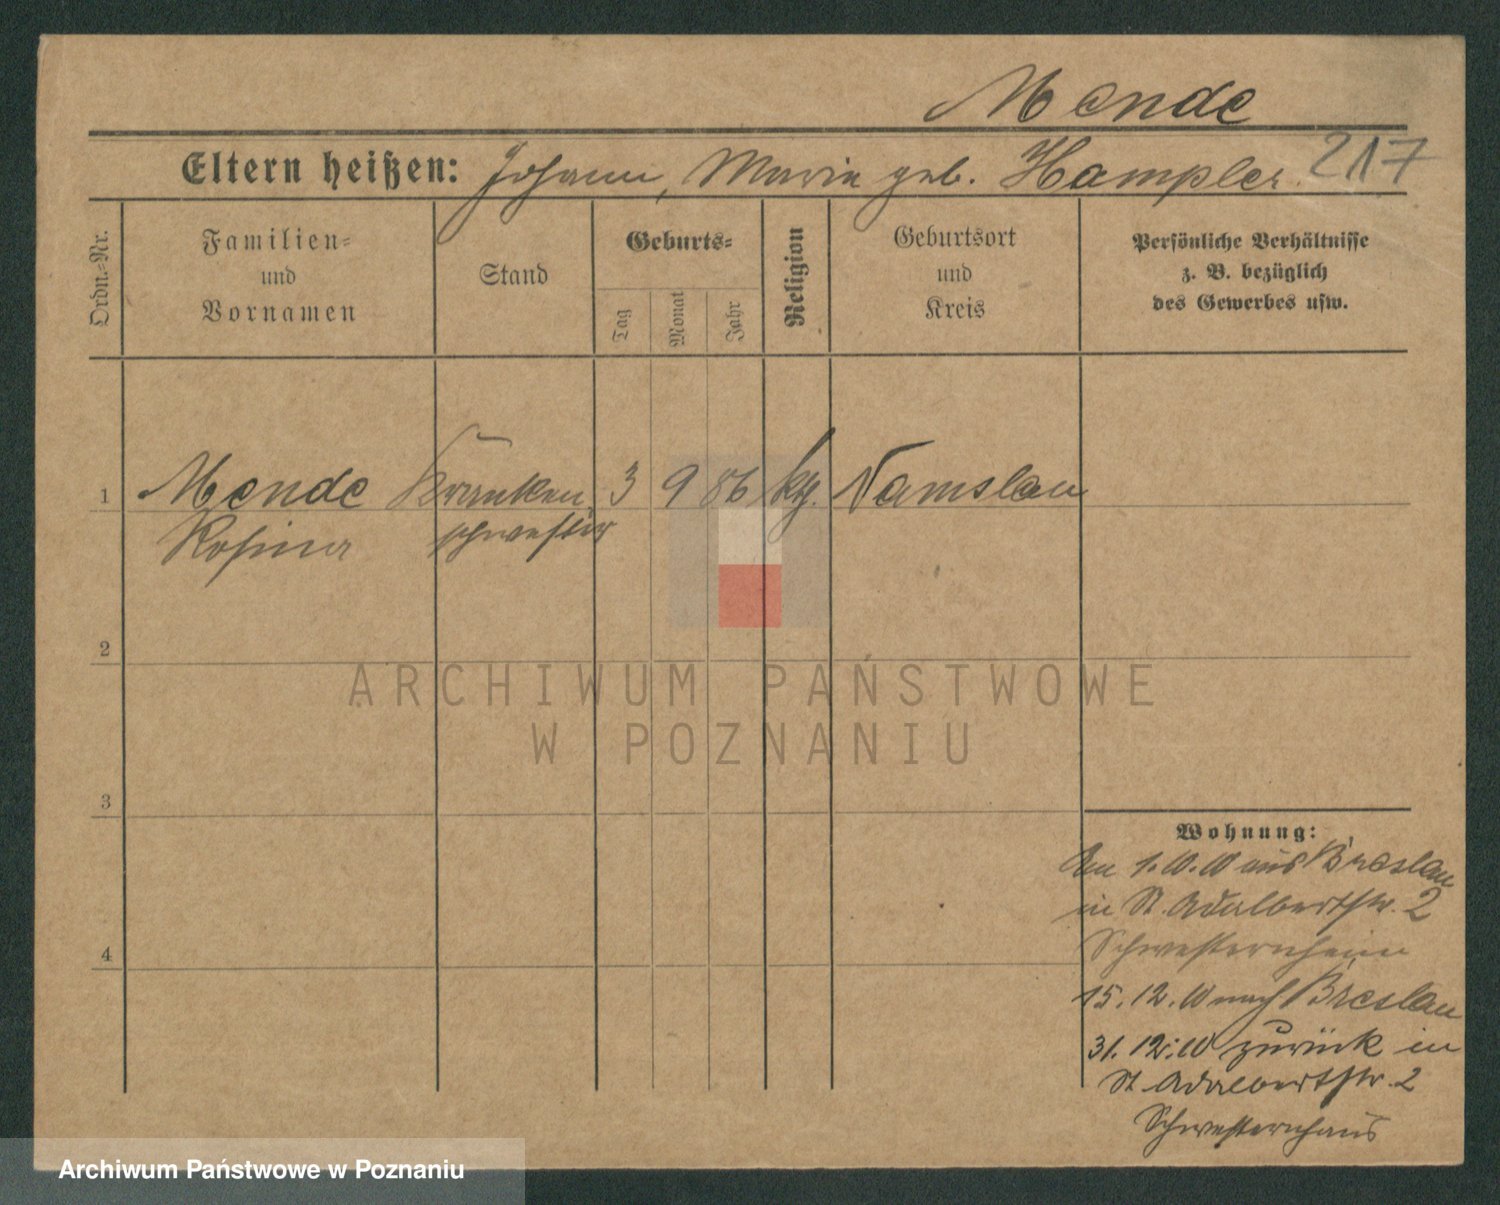 Mende
Eltern heißen: Johann, Marie geb. Hampler 217
Ordn.-Nr.
Familien-
und
Vornamen
Stand
Geburts-
Tag
Monat
Jahr
Religion
Geburtsort
und
Kreis
Persönliche Verhältnisse
z. B. bezüglich
des Gewerbes usw.
1 Mende Kranken 3 9 86 kth. Namslau
Rosina schwester
2
ARCHIWUM PAŃSTWOWE
W POZNANIU
3
Wohnung:
Am 1.10.10 aus Breslau
in St. Adalbertstr. 2
4
Schwesternheim
15.12.10 nach Breslau
31.12.10 zurück in
St. Adalbertstr. 2
Schwesternhaus
Archiwum Państwowe w Poznaniu